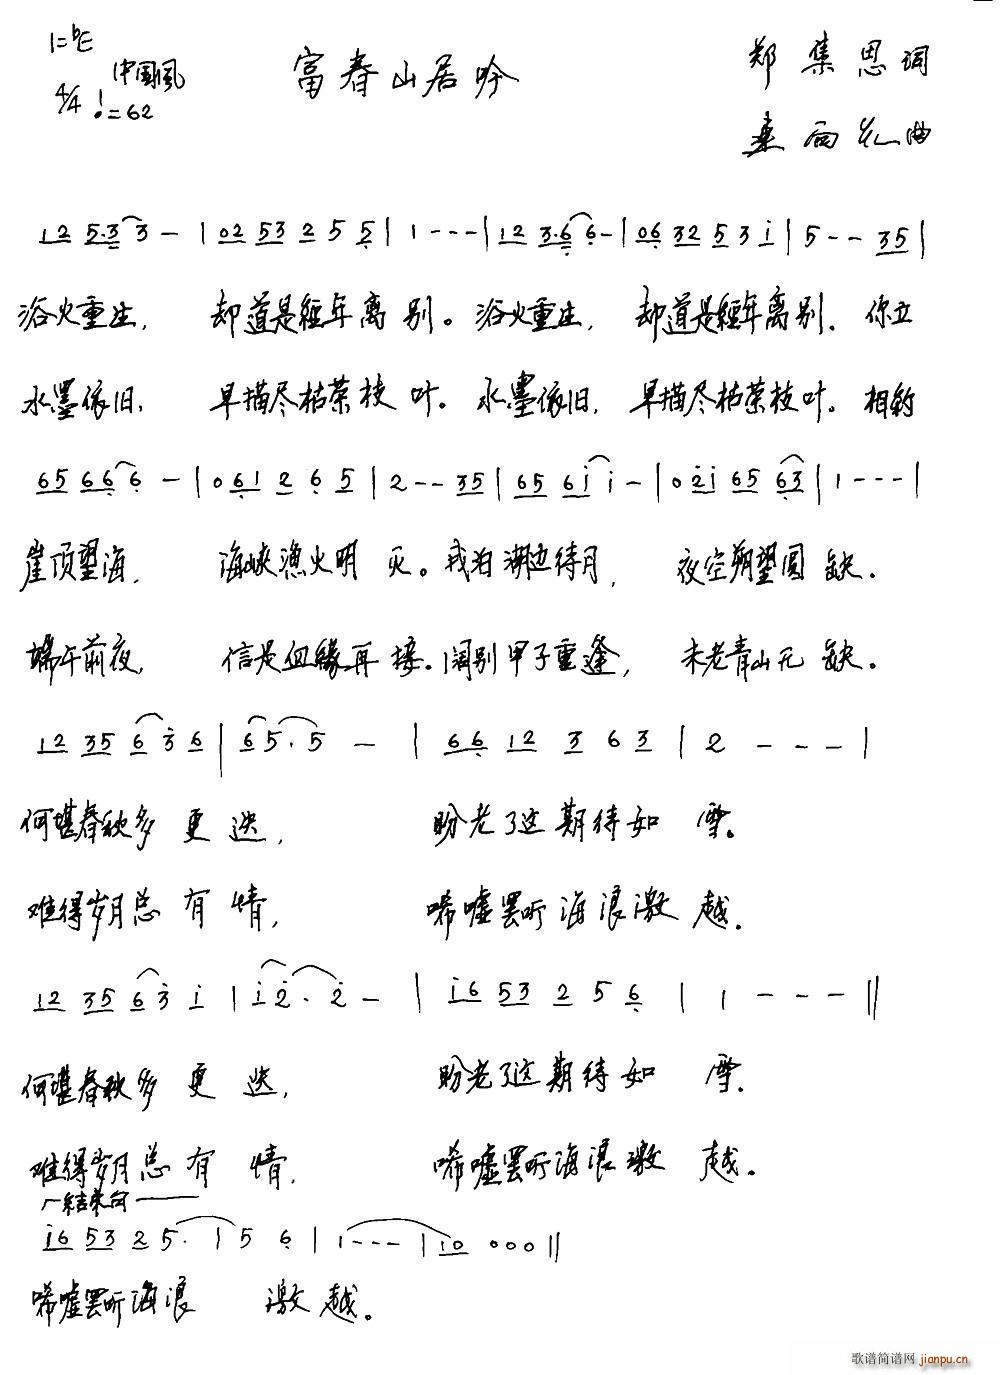 1=ᵇE 中国风
4/4 ♩=62
富春山居吟
郑集思词
桑雨花曲
12 5·3 3 - | 02 53 2 5 5 | 1 - - - | 12 3·6 6 - | 06 32 5 3 i | 5 - - 35 |
浴火重生, 却道是经年离别。浴火重生, 却道是經年离别. 你立
水墨依旧, 早描尽枯荣枝叶。水墨依旧, 早描尽枯荣枝叶。相约
65 66 6 - | 0 61 2 6 5 | 2 - - 35 | 65 6i i - | 0 2i 65 63 | 1 - - - |
崖顶望海, 海峡渔火明灭。我泊湖边待月, 夜空朔望圆缺.
端午前夜, 信是血缘再接. 阔别甲子重逢, 未老青山无缺。
12 35 6 3 6 | 6 5 · 5 - | 66 12 3 6 3 | 2 - - - |
何堪春秋多更迭, 盼老了这期待如雪。
难得岁月总有情, 唏嘘罢听海浪激越.
12 35 6 3 i | i 2 · 2 - | i6 53 2 5 6 | 1 - - - ‖
何堪春秋多更迭, 盼老了这期待如雪.
难得岁月总有情, 唏嘘罢听海浪激越。
结束句
i6 53 2 5· | 5 6 | 1 - - - | 10 0 0 0 ‖
唏嘘罢听海浪激越。
歌谱简谱网
jianpu.cn